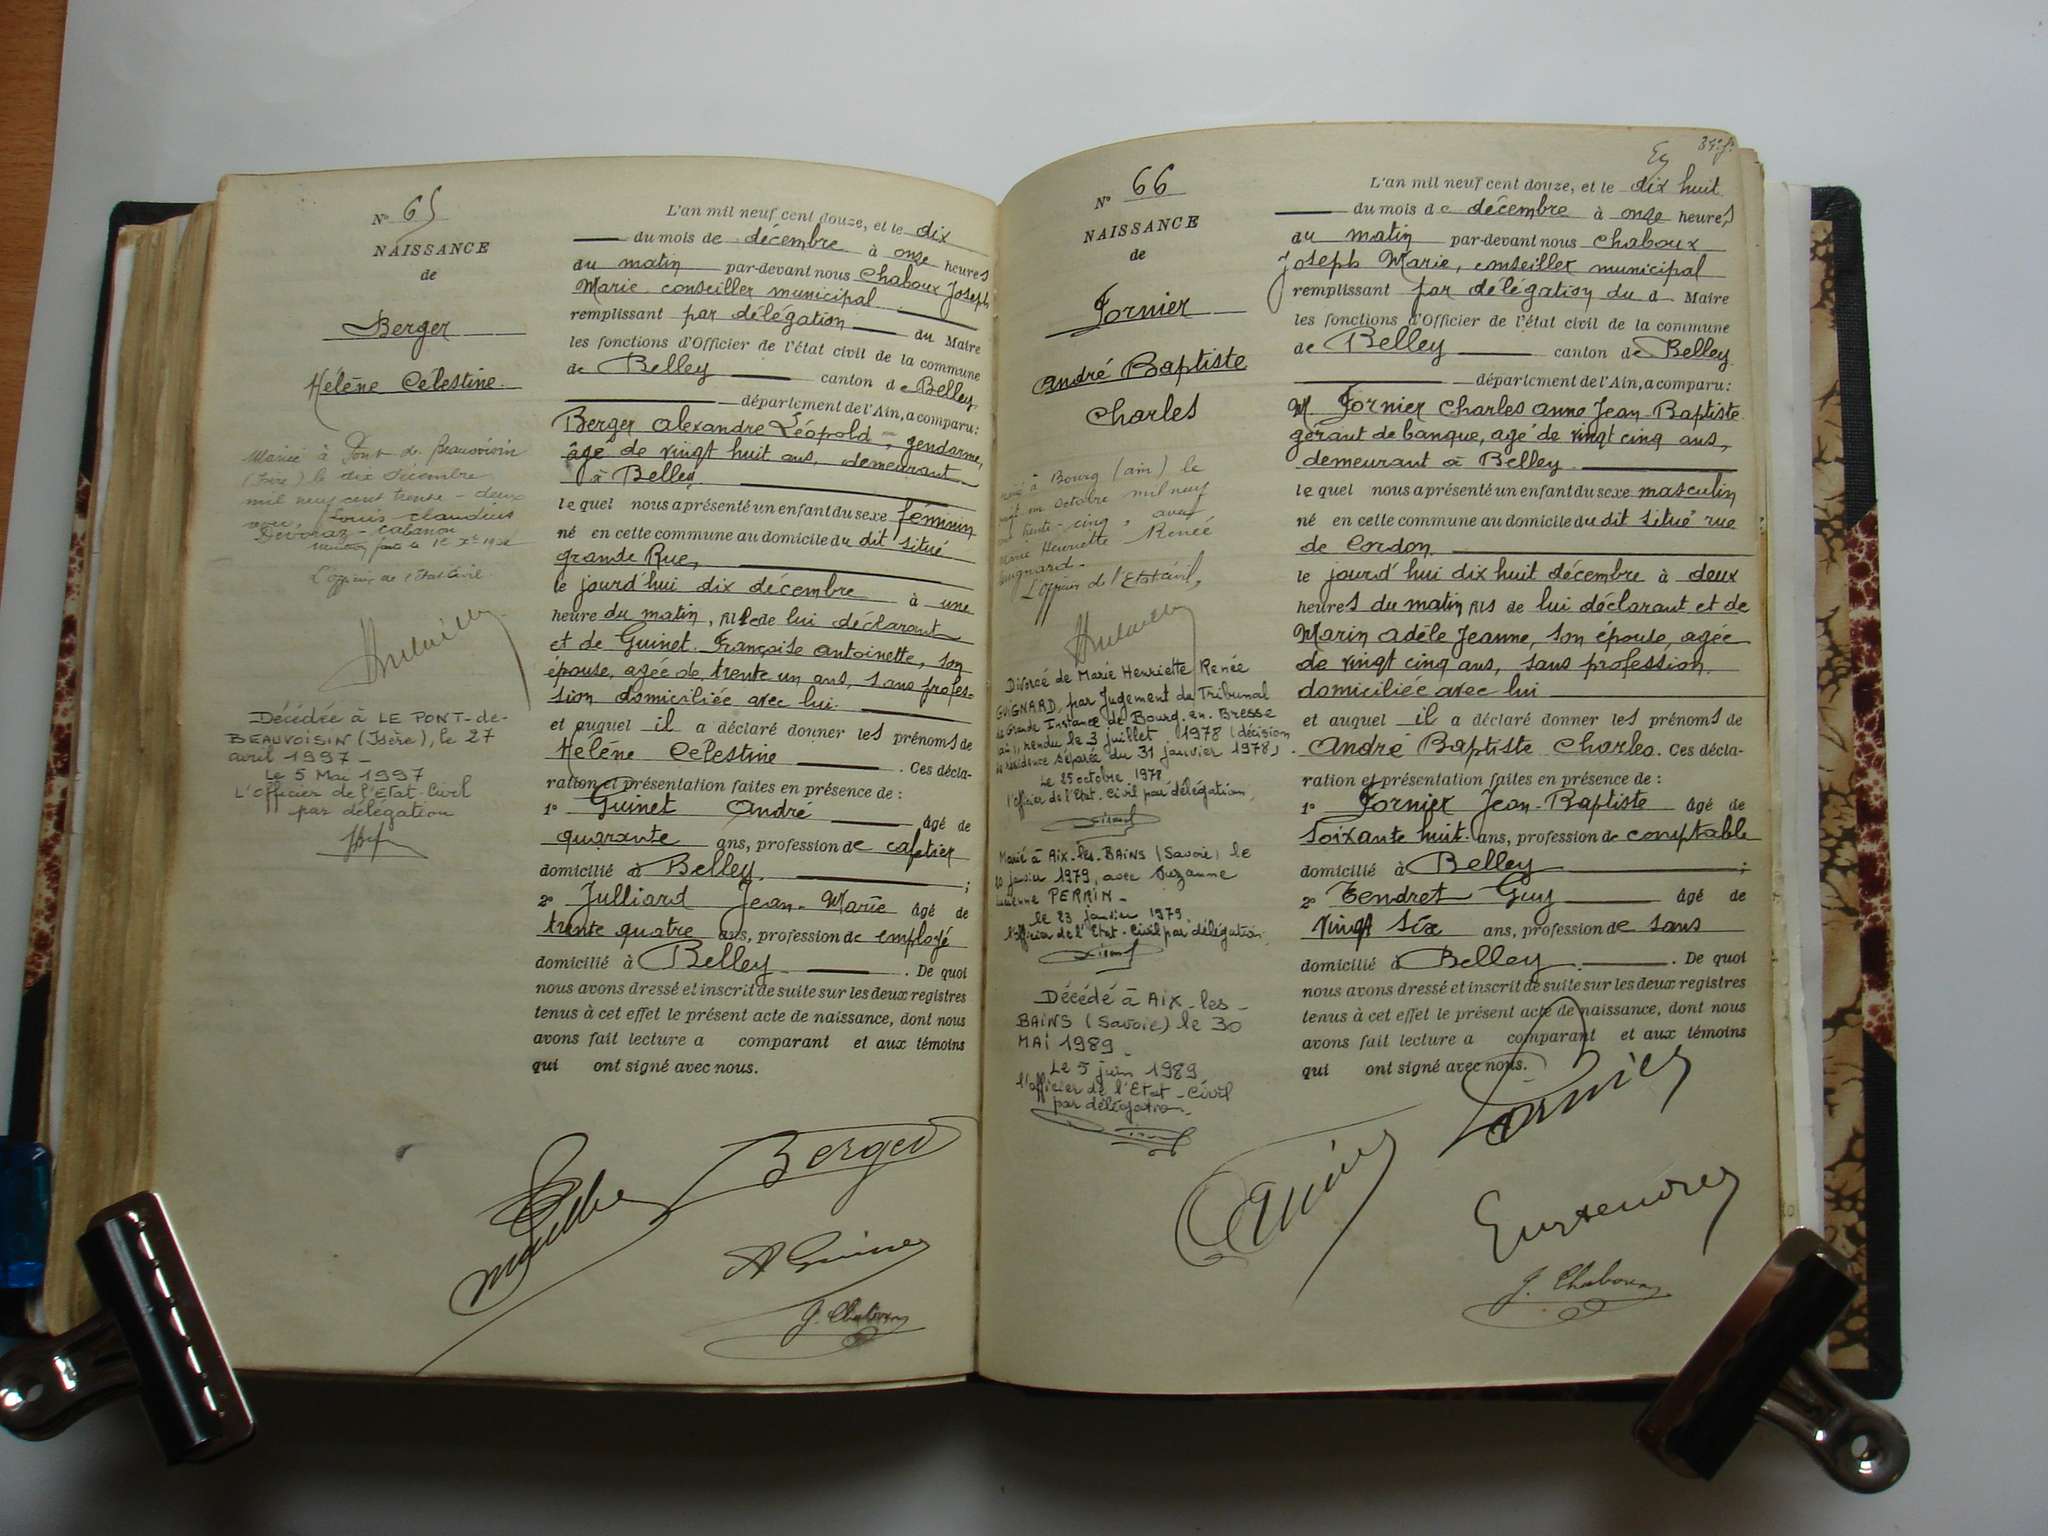 N° 65
NAISSANCE
de
Berger
Hélène Célestine
Mariée à Pont de Beauvoisin
(Isère) le dix décembre
mil neuf cent trente-deux
avec Louis Claudius
Devoraz-Cabanon
L'officier de l'Etat-Civil
Décédée à LE PONT-de-
BEAUVOISIN (Isère), le 27
avril 1997 -
Le 5 Mai 1997
L'Officier de l'Etat-Civil
par délégation
L'an mil neuf cent douze, et le dix
du mois de décembre à onze heures
du matin par-devant nous Chaboux Joseph
Marie conseiller municipal
remplissant par délégation du Maire
les fonctions d'Officier de l'état civil de la commune
de Belley canton de Belley
département de l'Ain, a comparu:
Berger Alexandre Léopold, gendarme,
âgé de vingt huit ans, demeurant
à Belley
lequel nous a présenté un enfant du sexe féminin
né en cette commune au domicile du dit situé
grande Rue,
le jourd'hui dix décembre à une
heure du matin, fille de lui déclarant
et de Guinet Françoise Antoinette, son
épouse, agée de trente un ans, sans profes-
sion domiciliée avec lui.
et auquel il a déclaré donner les prénoms de
Hélène Célestine. Ces décla-
ration et présentation faites en présence de :
1° Guinet André âgé de
quarante ans, profession de cafetier
domicilié à Belley ;
2° Julliard Jean-Marie âgé de
trente quatre ans, profession de employé
domicilié à Belley. De quoi
nous avons dressé et inscrit de suite sur les deux registres
tenus à cet effet le présent acte de naissance, dont nous
avons fait lecture a comparant et aux témoins
qui ont signé avec nous.
Berger
A Guinet
J. Chaboux
N° 66
NAISSANCE
de
Fornier
André Baptiste
Charles
à Bourg (Ain) le
octobre mil neuf
trente-cinq, avec
Marie Henriette Renée
Guignard -
L'officier de l'Etat civil,
Divorcé de Marie Henriette Renée
GUIGNARD, par Jugement du Tribunal
de Grande Instance de Bourg-en-Bresse
(Ain), rendu le 3 juillet 1978 (décision
de résidence séparée du 31 janvier 1978)
Le 25 octobre 1978
l'officier de l'Etat-Civil par délégation,
Marié à Aix-les-BAINS (Savoie) le
janvier 1979, avec Suzanne
Lucienne PERRIN -
le 23 janvier 1979
l'officier de l'Etat-Civil par délégation,
Décédé à AIX-les-
BAINS (Savoie) le 30
MAI 1989 -
Le 5 juin 1989
l'officier de l'Etat-Civil
par délégation -
L'an mil neuf cent douze, et le dix huit
du mois de décembre à onze heures
du matin par-devant nous Chaboux
Joseph Marie, conseiller municipal
remplissant par délégation du Maire
les fonctions d'Officier de l'état civil de la commune
de Belley canton de Belley
département de l'Ain, a comparu:
M. Fornier Charles Anne Jean-Baptiste
gérant de banque, agé de vingt cinq ans,
demeurant à Belley
lequel nous a présenté un enfant du sexe masculin
né en cette commune au domicile du dit situé rue
de Cordon
le jourd'hui dix huit décembre à deux
heures du matin fils de lui déclarant et de
Marin Adèle Jeanne, son épouse, agée
de vingt cinq ans, sans profession
domiciliée avec lui
et auquel il a déclaré donner les prénoms de
André Baptiste Charles. Ces décla-
ration et présentation faites en présence de :
1° Fornier Jean-Baptiste âgé de
soixante huit ans, profession de comptable
domicilié à Belley ;
2° Tendret Guy âgé de
vingt six ans, profession de sans
domicilié à Belley. De quoi
nous avons dressé et inscrit de suite sur les deux registres
tenus à cet effet le présent acte de naissance, dont nous
avons fait lecture a comparant et aux témoins
qui ont signé avec nous.
Fornier
Guy Tendret
J. Chaboux